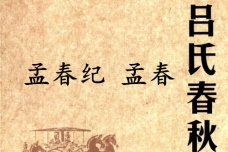 吕氏春秋
孟春纪 孟春